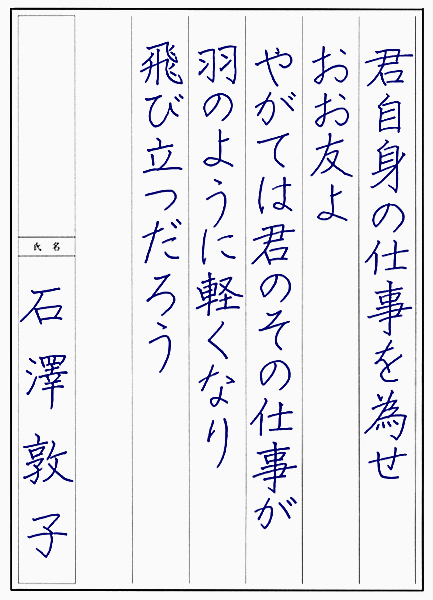 君自身の仕事を為せ
おお友よ
やがては君のその仕事が
羽のように軽くなり
飛び立つだろう
氏名
石澤敦子